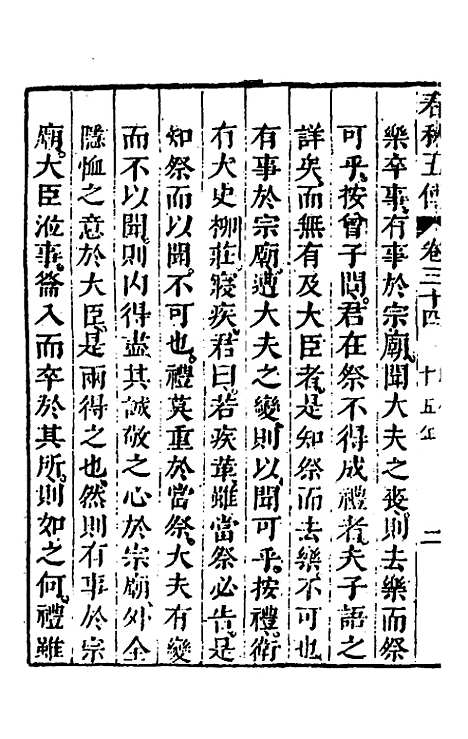 春秋五傳 卷三十四 十五年 二
樂卒事有事於宗廟聞大夫之喪則去樂而祭
可乎按曾子問君在祭不得成禮者夫子語之
詳矣而無有及大臣者是知祭而去樂不可也
有事於宗廟遭大夫之變則以聞可乎按禮衛
有大史柳莊寢疾君曰若疾革雖當祭必告是
知祭而以聞不可也禮莫重於當祭大夫有變
而不以聞則內得盡其誠敬之心於宗廟外全
隱恤之意於大臣是兩得之也然則有事於宗
廟大臣涖事籥入而卒於其所則如之何禮雖